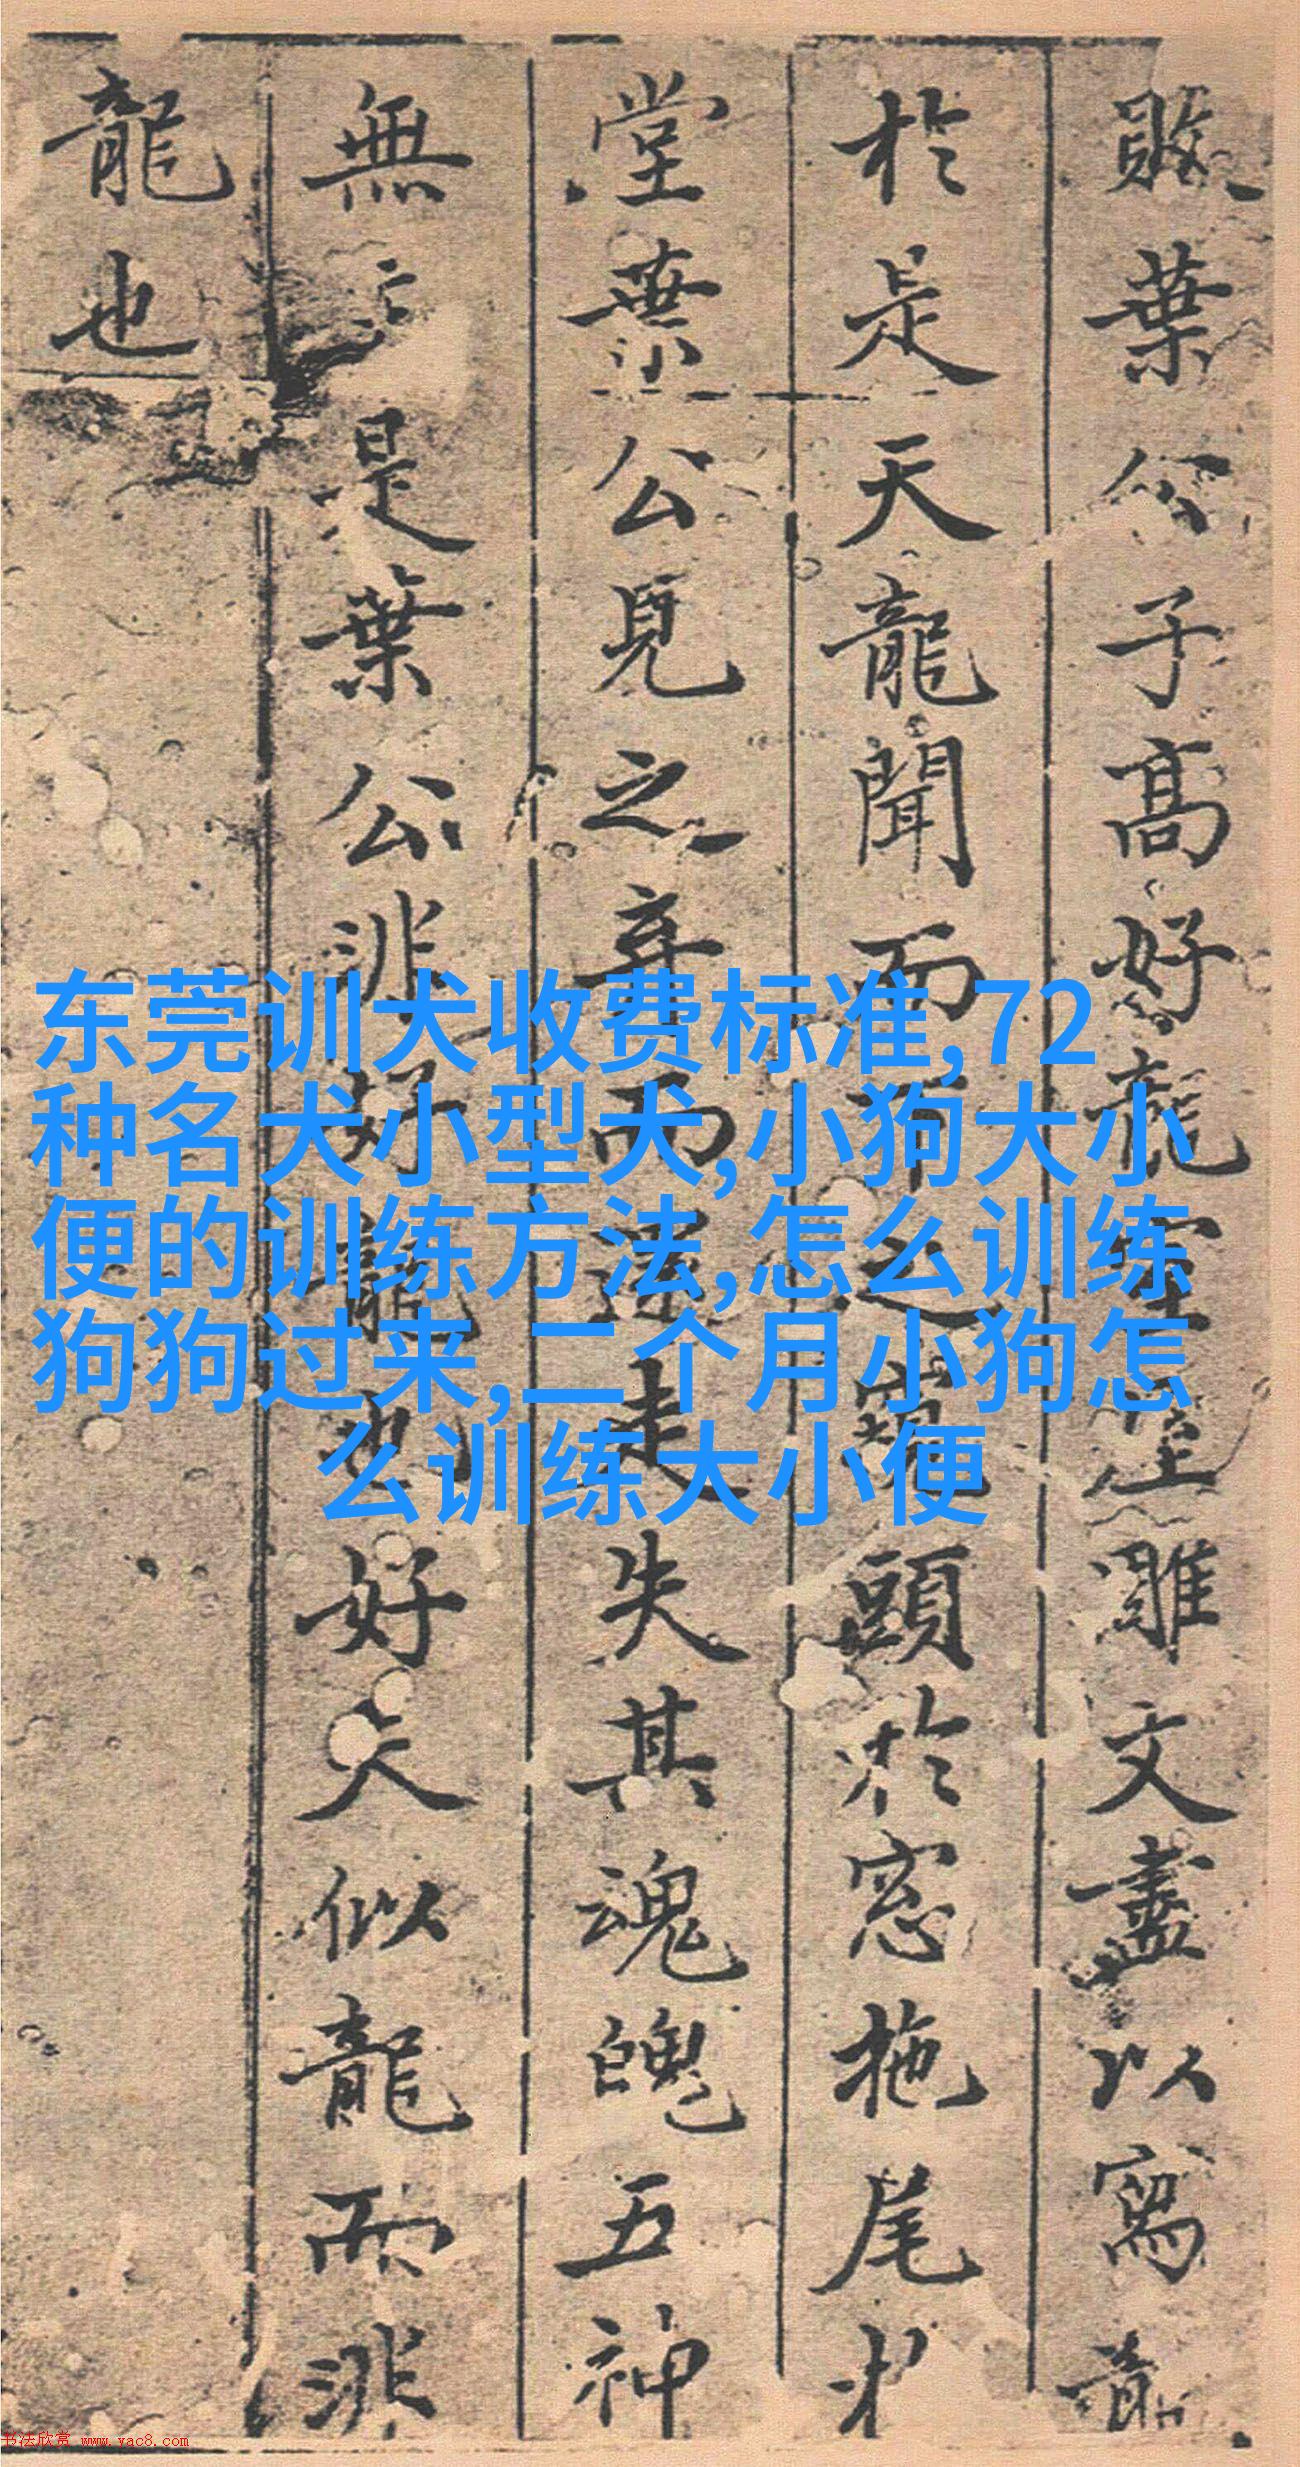 敗葉公子高好龍室屋雕文盡以寫龍
於是天龍聞而下之窺頭於窓拖尾於
堂葉公見之弃而還走失其魂魄五神
無主是葉公非好龍也好夫似龍而非
龍也
东莞训犬收费标准,72
种名犬小型犬,小狗大小
便的训练方法,怎么训练
狗狗过来,二个月小狗怎
么训练大小便
书法欣赏 www.yac8.com